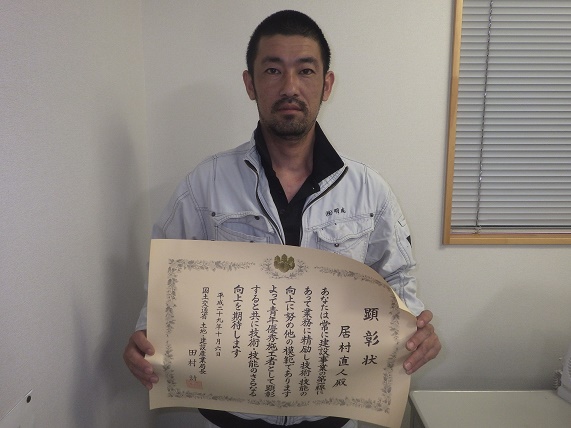 顕彰状
居村直人殿
あなたは常に建設事業の第一線に
あって業務に精励し技術・技能の
向上に努め他の模範であります
よって青年優秀施工者として顕彰
すると共に技術・技能のさらなる
向上を期待します
平成二十九年十月六日
国土交通省 土地・建設産業局長
田村